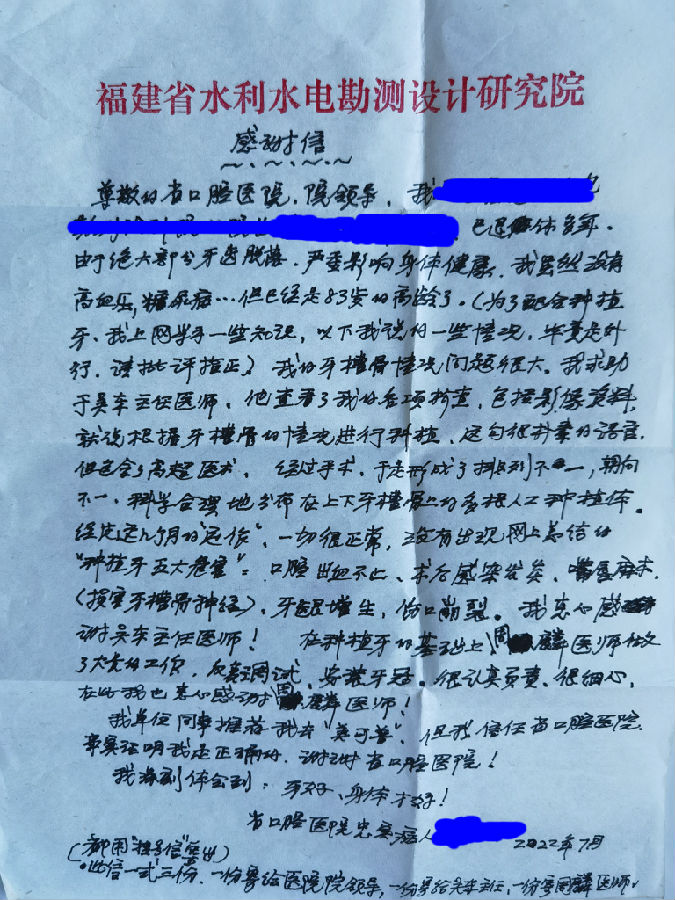 福建省水利水电勘测设计研究院
感谢信
尊敬的省口腔医院,院领导,我
已退休多年。
由于绝大部分牙齿脱落,严重影响身体健康,我虽然没有
高血压,糖尿病…但已经是83岁的高龄了。(为了配合种植
牙、我上网学习一些知识,以下我说的一些情况,毕竟是外
行,请批评指正)我的牙槽骨情况问题很大。我求助
于吴东主任医师,他查看了我的各项检查,包括影像资料,
就说根据牙槽骨的情况进行种植,这句很朴素的语言,
但包含了高超医术。经过手术,于是形成了排列不一,朝向
不一、科学合理地分布在上下牙槽骨上的多根人工种植体。
经过这几个月的“运作”,一切很正常,没有出现网上总结的
“种植牙五大危害”:口腔出血不止、术后感染发炎、嘴唇麻木
(损害牙槽骨神经),牙龈增生,伤口崩裂。我衷心感
谢吴东主任医师!在种植牙的基础上,周麟医师做
了大量的工作,反复调试,安装牙冠。很认真负责,很细心,
在此我也衷心感谢周麟医师!
我单位同事推荐我去“美可普”,但我信任省口腔医院,
事实证明我是正确的,谢谢省口腔医院!
我深刻体会到:牙好、身体才好!
省口腔医院忠实病人
2022年7月
(都用“挂号信”寄出)
此信一式三份,一份寄给医院院领导,一份寄给吴东主任,一份寄周麟医师。